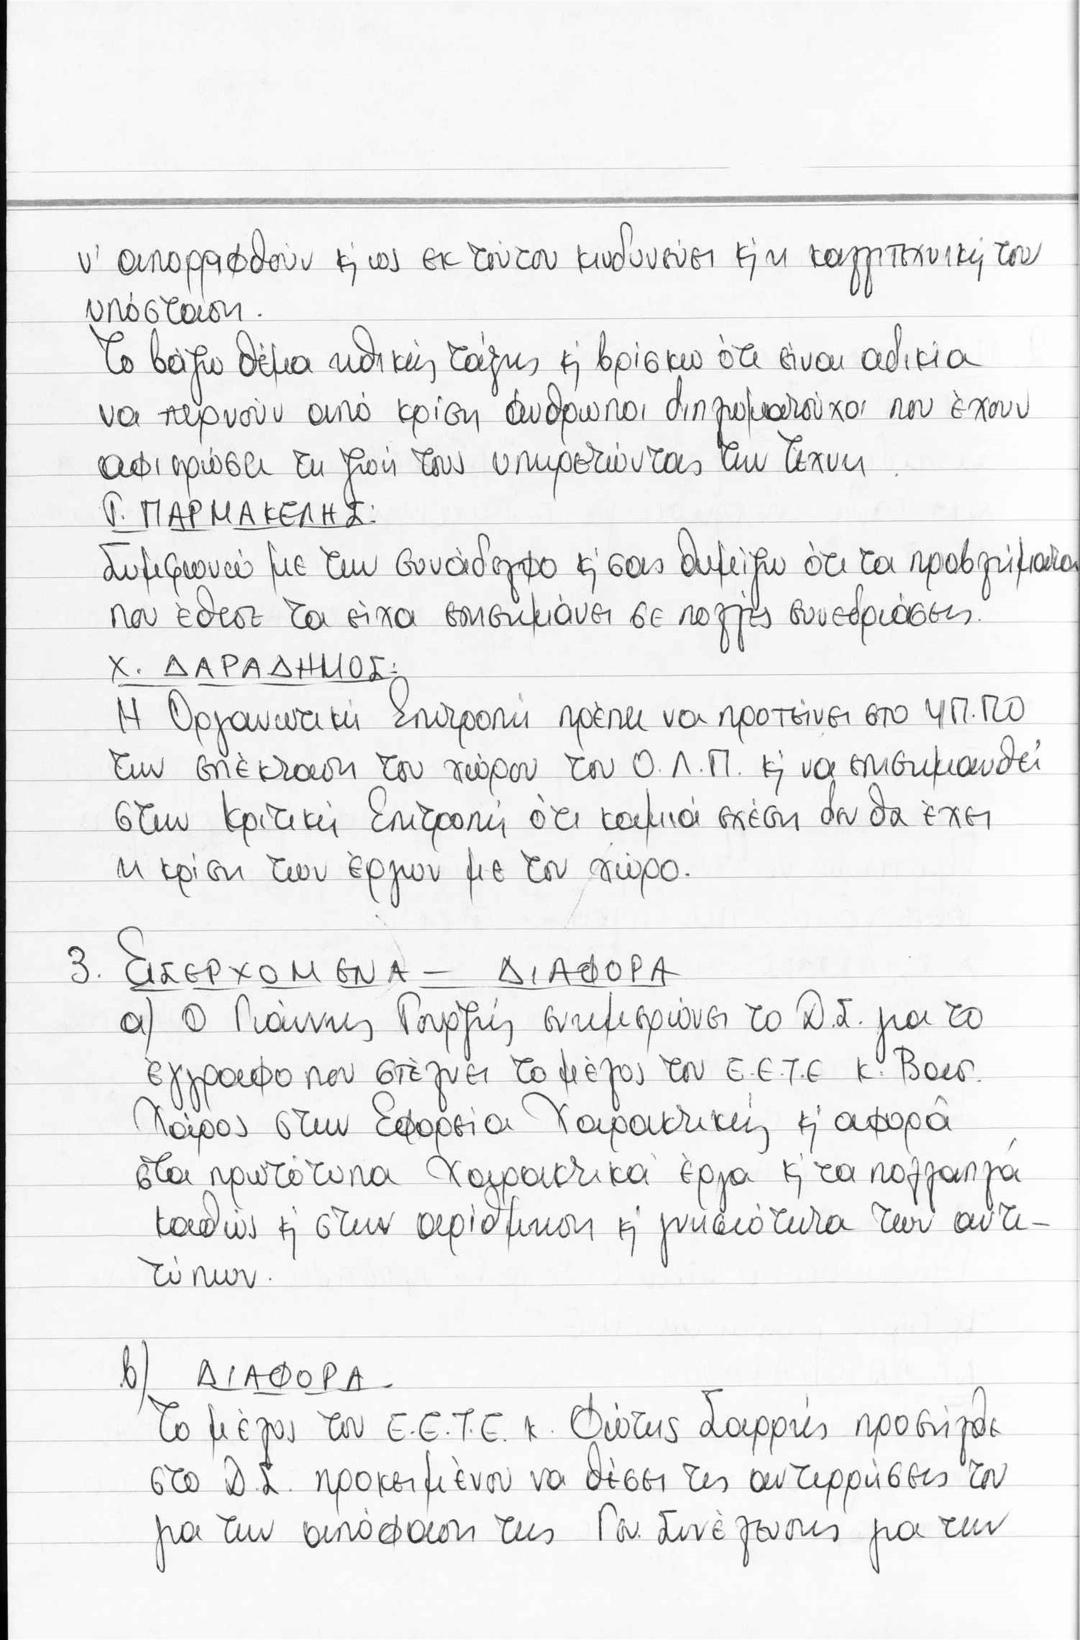 ν' απορριφθούν κ' ως εκ τούτου κινδυνεύει κ' η καλλιτεχνική του
υπόσταση.
Το βάζω θέμα ηθικής τάξης κ' βρίσκω ότι είναι αδικία
να περνούν από κρίση άνθρωποι διπλωματούχοι που έχουν
αφιερώσει τη ζωή τους υπηρετώντας την τέχνη.
Γ. ΠΑΡΜΑΚΕΛΗΣ:
Συμφωνώ με τον συνάδελφο κ' σας θυμίζω ότι τα προβλήματα
που έθεσε τα είχα επισημάνει σε πολλές συνεδριάσεις.
Χ. ΔΑΡΑΔΗΜΟΣ:
Η Οργανωτική Επιτροπή πρέπει να προτείνει στο ΥΠ.ΠΟ
την επέκταση του χώρου του Ο.Λ.Π. κ' να επισημανθεί
στην Κριτική Επιτροπή ότι καμιά σχέση δεν θα έχει
η κρίση των έργων με τον χώρο.
3. ΕΙΣΕΡΧΟΜΕΝΑ – ΔΙΑΦΟΡΑ
α) Ο Γιάννης Γουρζής ενημερώνει το Δ.Σ. για το
έγγραφο που στέλνει το μέλος του Ε.Ε.Τ.Ε κ. Βασ.
Χάρος στην Εφορεία Χαρακτικής κ' αφορά
στα πρωτότυπα Χαρακτικά έργα κ' τα πολλαπλά
καθώς κ' στην αρίθμηση κ' γνησιότητα των αντι-
τύπων.
β) ΔΙΑΦΟΡΑ
Το μέλος του Ε.Ε.Τ.Ε. κ. Φώτης Σαρρής προσήλθε
στο Δ.Σ. προκειμένου να θέσει τις αντιρρήσεις του
για την απόφαση της Γεν. Συνέλευσης για την